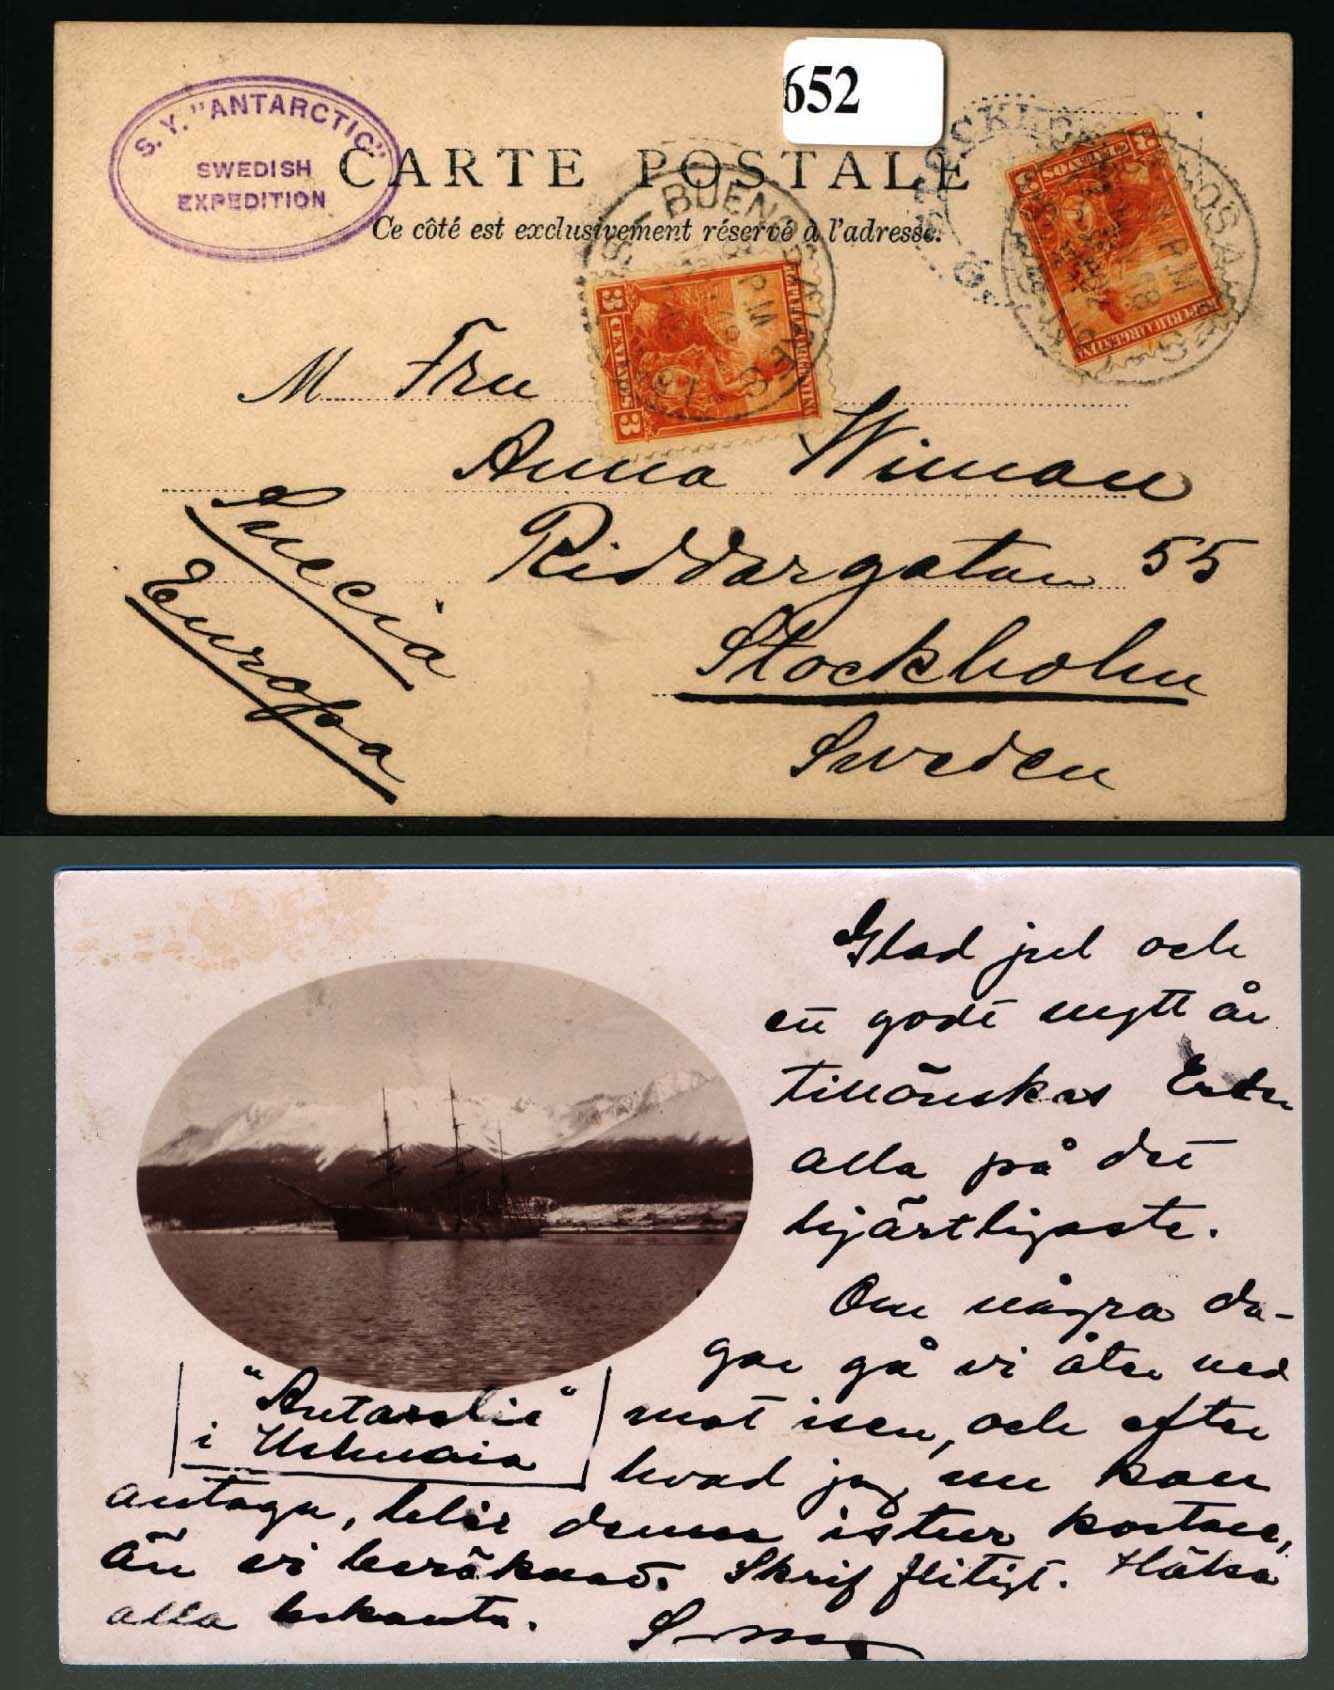 652
S. Y. "ANTARCTIC"
SWEDISH
EXPEDITION
CARTE POSTALE
Ce côté est exclusivement réservé à l'adresse.
BUENOS AIRES
3 CENTAVOS 3
REPUBLICA ARGENTINA
M Fru
Anna Wiman
Riddargatan 55
Stockholm
Sweden
Suecia
Europa
Glad jul och
ett godt nytt år
tillönskas Eder
alla på det
hjärtligaste.
Om några da-
gar gå vi åter ned
mot isen, och efter
hvad jag nu kan
antaga, blir denna istur kortare,
än vi beräknad. Skrif flitigt. Hälsa
alla bekanta.
"Antarctic"
i Ushuaia